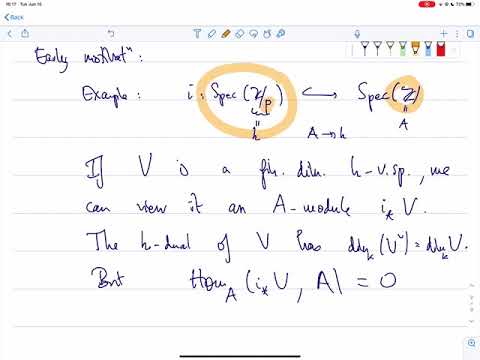 10:17 Tue Jun 16
72%
Back
Early motivatⁿ:
Example: i : Spec(ℤ/p) ↪ Spec(ℤ)
= k A→k = A
If V is a fin. dim. k-v.sp., we
can view it an A-module i_* V.
The k-dual of V has dim_k(V^∨)=dim_k V.
But Hom_A(i_* V, A) = 0